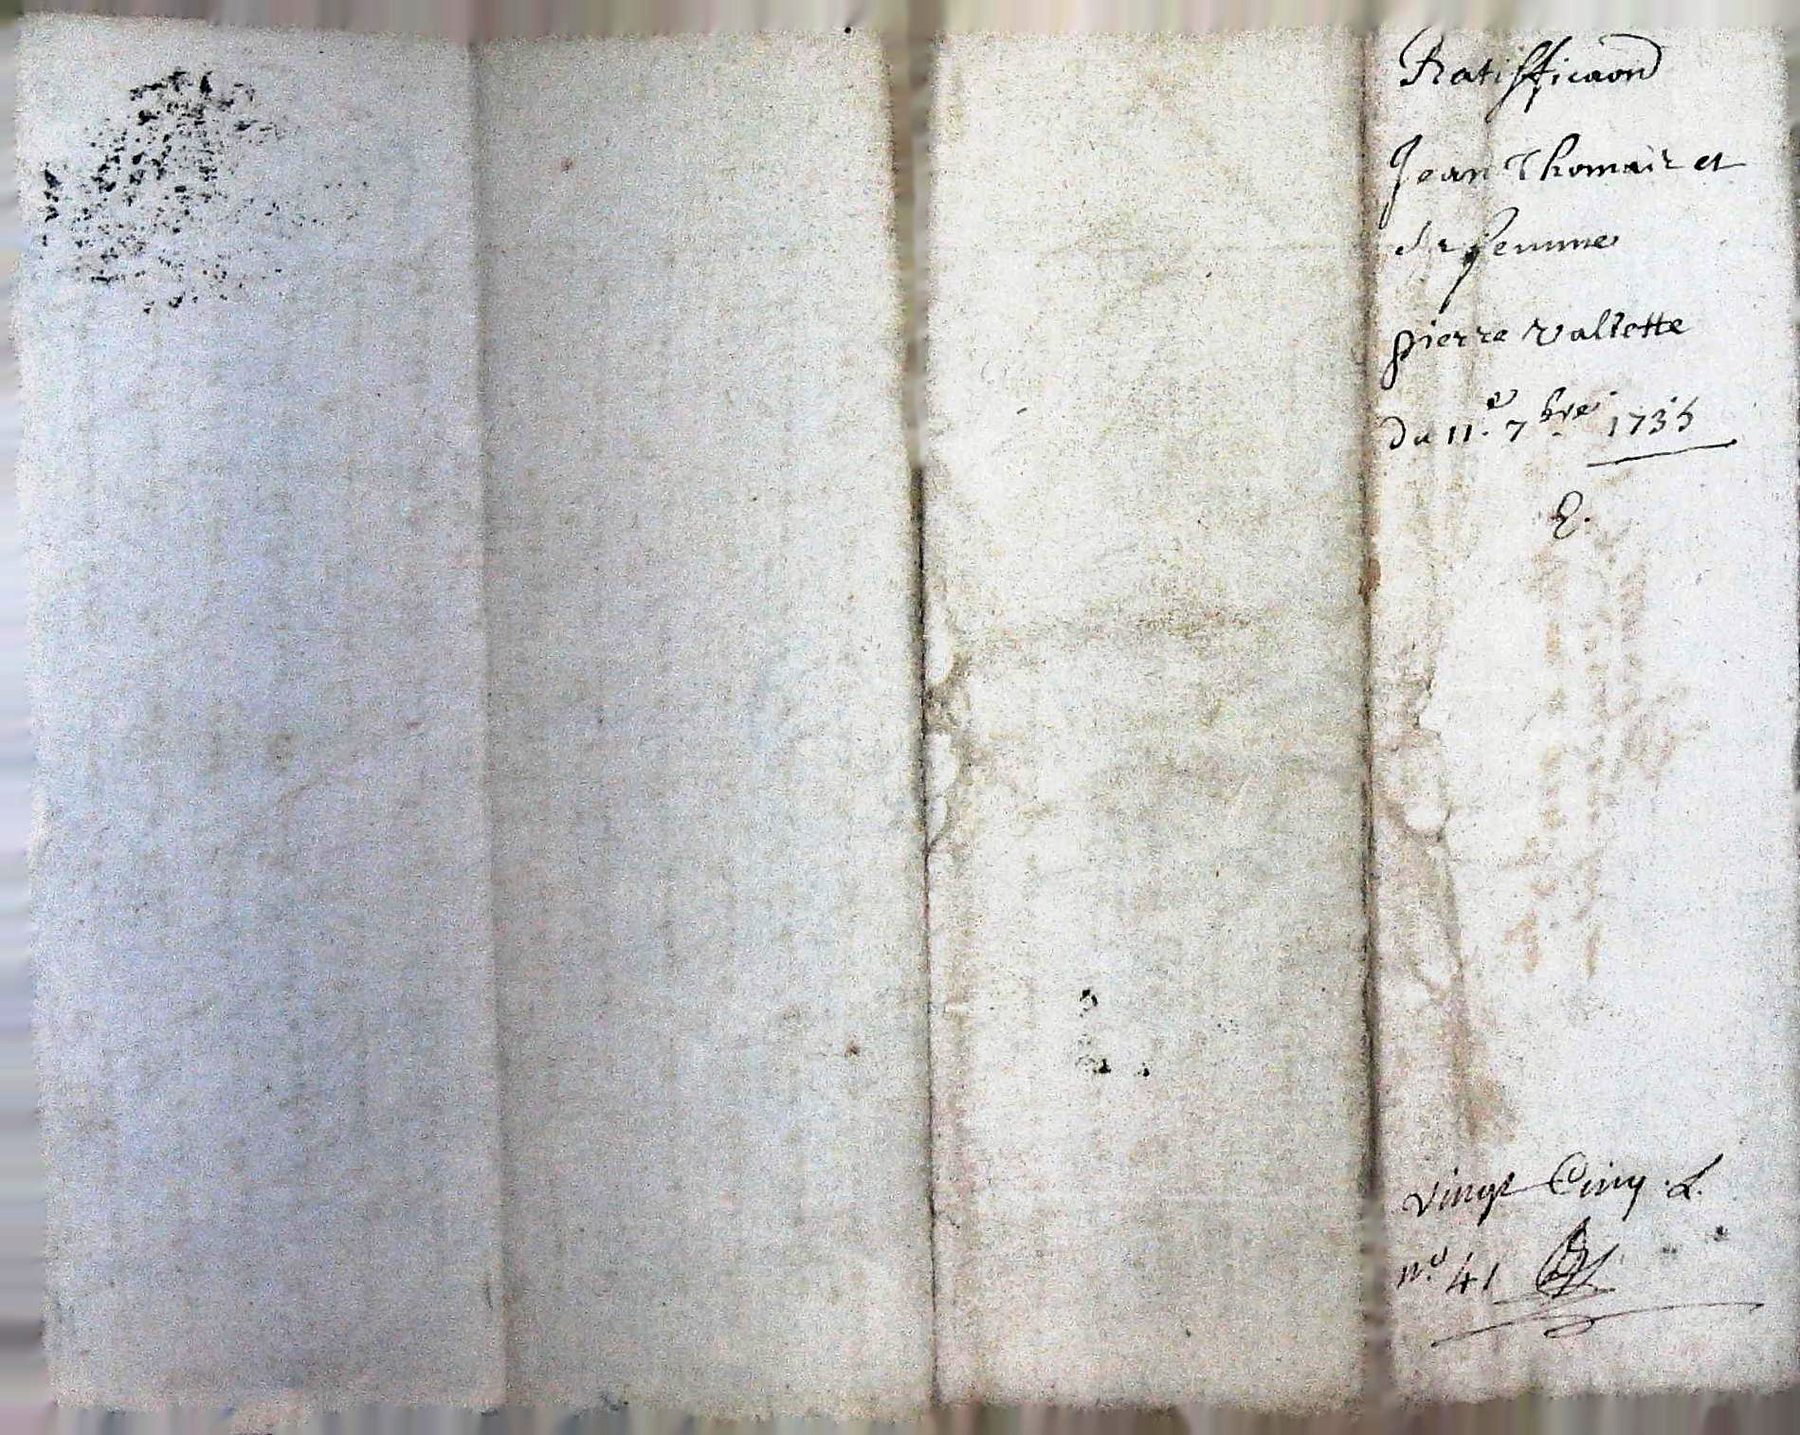 Ratifficaon
Jean Thomair et
sa femme
pierre vallette
du 11.e 7bre 1735
E.
vingt Cinq L.
n.o 41